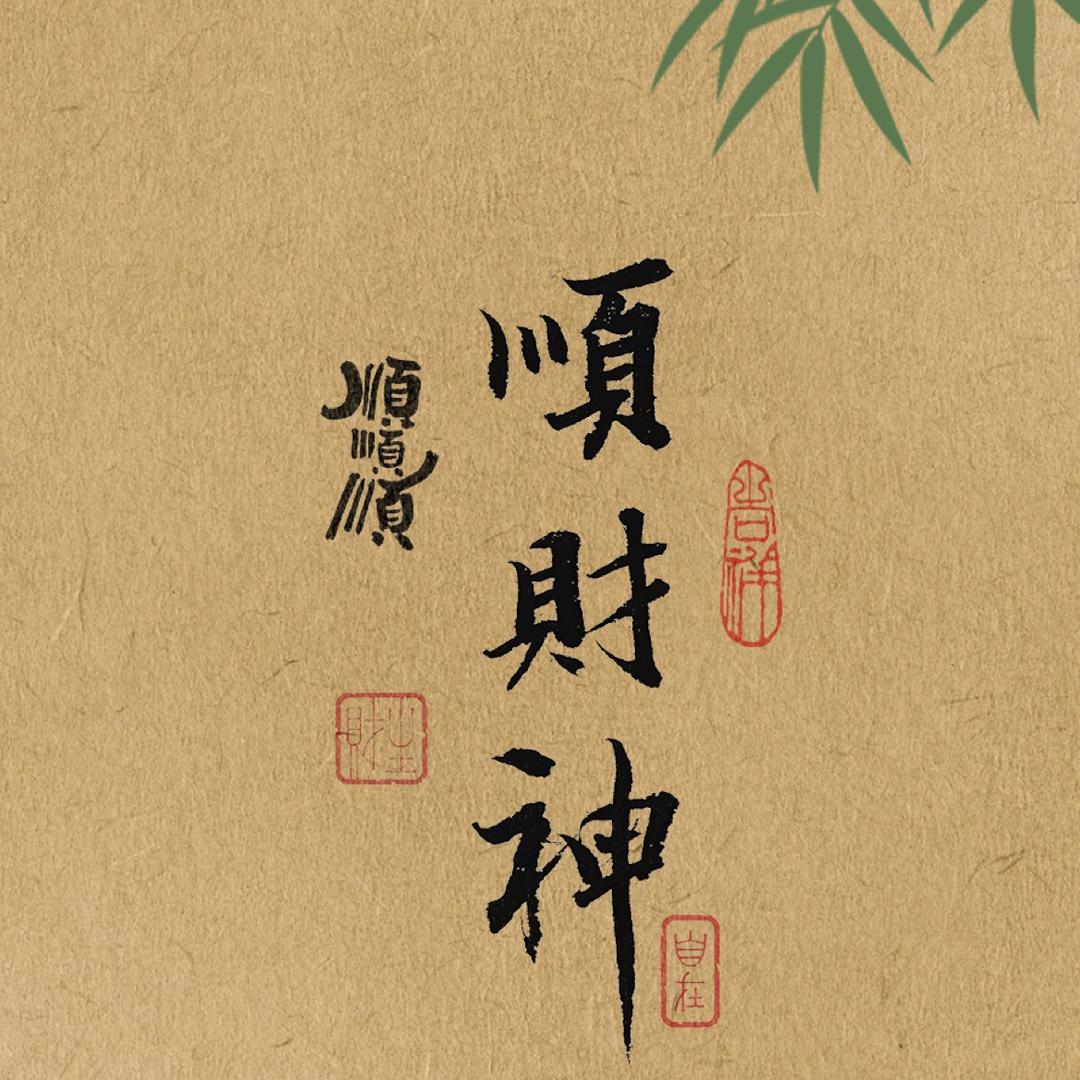 順財神
順順順
自在
生財